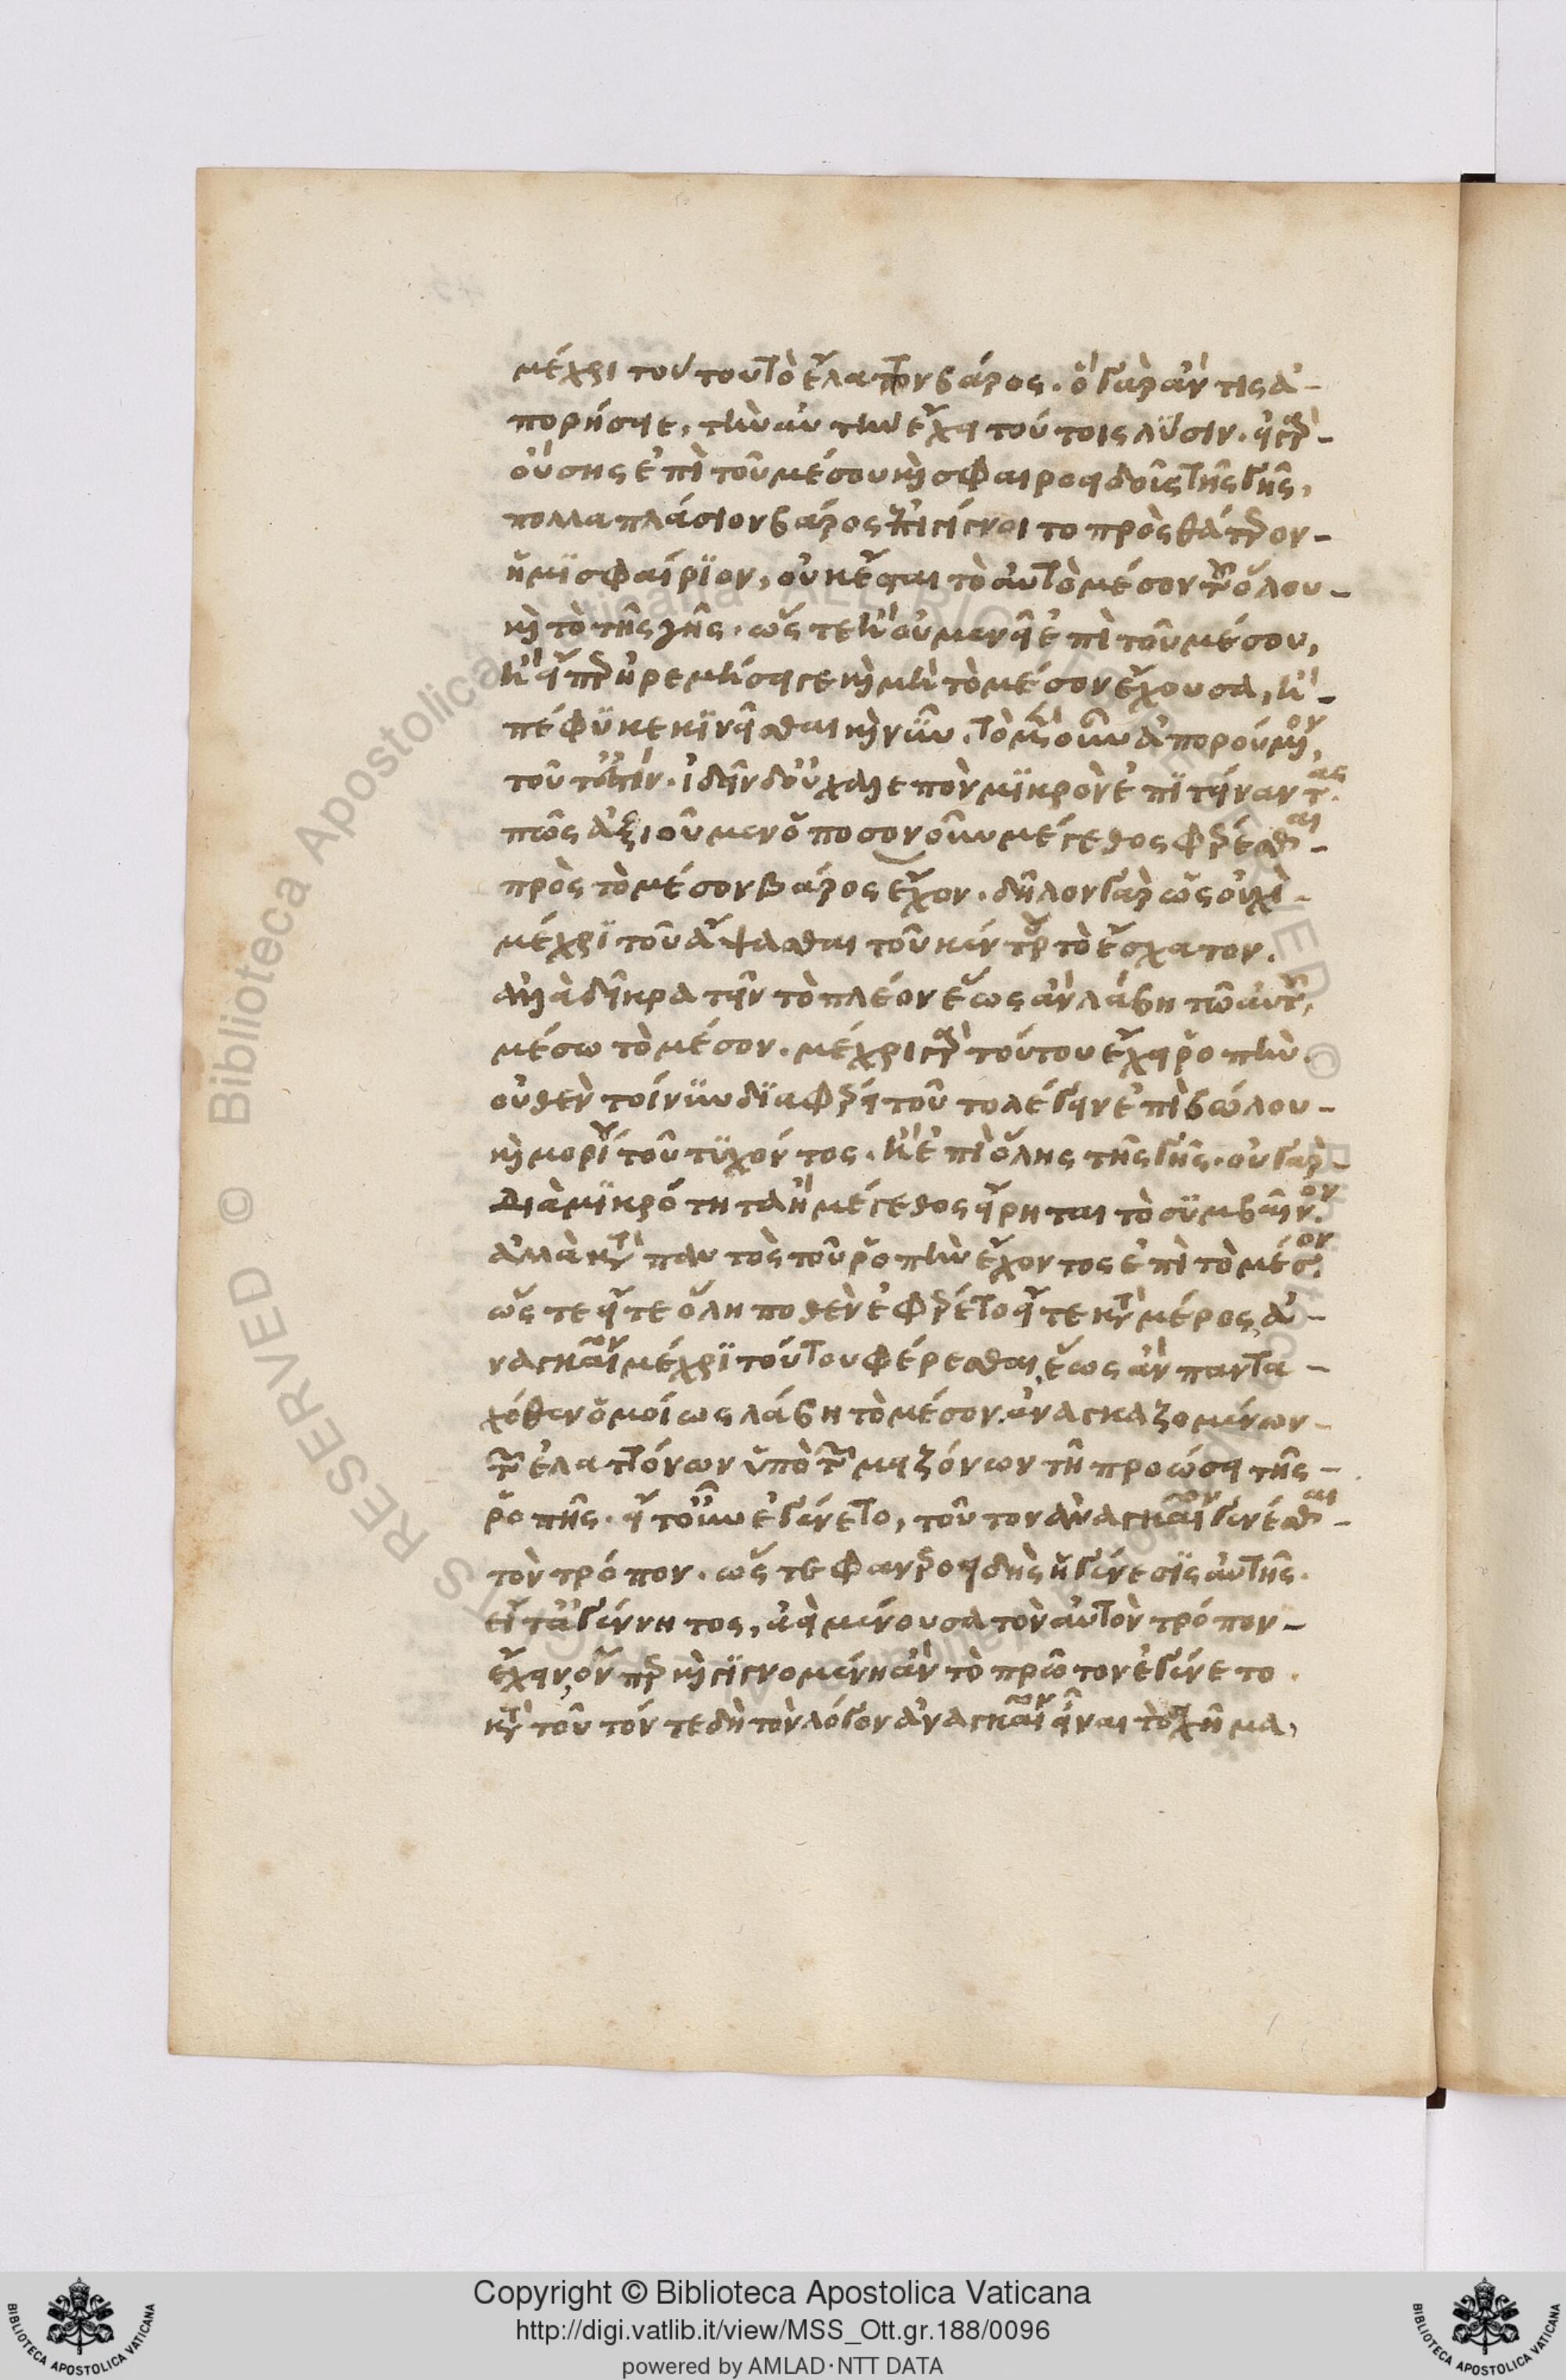 μέχρι τούτου τὸ ἔλαττον βάρος. ὃ γὰρ ἄν τις ἀ-
πορήσειε, τὴν αὐτὴν ἔχει τούτοις λύσιν. εἰ γὰρ
οὔσης ἐπὶ τοῦ μέσου καὶ σφαιροειδοῦς τῆς γῆς,
πολλαπλάσιον βάρος ἐπιγένοιτο πρὸς θάτερον
ἡμϊσφαίρϊον, οὐκ ἔσται τὸ αὐτὸ μέσον τοῦ ὅλου
καὶ τὸ τῆς γῆς. ὥστε ἢ οὐ μενεῖ ἐπὶ τοῦ μέσου,
ἢ εἴπερ ἠρεμήσει γε καὶ μὴ τὸ μέσον ἔχουσα, ἢ
πέφϋκε κϊνεῖσθαι καὶ νῦν. τὸ μὲν οὖν ἀπορούμενον,
τοῦτ ἐστίν. ἰδεῖν δ' οὐ χαλεπὸν μϊκρὸν ἐπϊτείναντας.
πῶς ἀξιοῦμεν ὁποσονοῦν μέγεθος φέρεσθαι
πρὸς τὸ μέσον βάρος ἔχον. δῆλον γὰρ ὡς οὐχὶ
μέχρϊ τοῦ ἅψασθαι τοῦ κέντρου τὸ ἔσχατον.
ἀλλὰ δεῖ κρατεῖν τὸ πλέον ἕως ἂν λάβη τῶ αὐτοῦ,
μέσω τὸ μέσον. μέχρι γὰρ τούτου ἔχει ῥοπὴν.
οὐθὲν τοίνϋν δϊαφέρει τοῦτο λέγειν ἐπὶ βώλου
καὶ μορίου τοῦ τϋχόντος. ἢ ἐπὶ ὅλης τῆς γῆς. οὐ γὰρ
διὰ μϊκρότητα ἢ μέγεθος εἴρηται τὸ σϋμβαῖνον.
ἀλλὰ κατὰ παντὸς τοῦ ῥοπὴν ἔχοντος ἐπὶ τὸ μέσον.
ὥστε εἴτε ὅλη ποθὲν ἐφέρετο εἴτε κατὰ μέρος, ἀ-
ναγκαῖον μέχρϊ τούτου φέρεσθαι ἕως ἂν πανta-
χόθεν ὁμοίως λάβη τὸ μέσον. ἀναγκαζομένων
τῶν ἐλαττόνων ὑπὸ τῶν μειζόνων τῆ προώσει τῆς
ῥοπῆς. εἴτ' οὖν ἐγένετο, τοῦτον ἀναγκαῖον γενέσθαι
τὸν τρόπον. ὥστε φανερὸ εἰδὴς ἡ γένεσϊς αὐτῆς.
εἴτ' ἀγέννητος, ἀεὶ μένουσα τὸν αὐτὸν τρόπον
ἔχειν, ὅνπερ καὶ γϊγνομένη ἂν τὸ πρῶτον ἐγένετο.
κατὰ τοῦτόν τε δὴ τὸν λόγον ἀναγκαῖον εἶναι τὸ σχῆμα,
Copyright © Biblioteca Apostolica Vaticana
http://digi.vatlib.it/view/MSS_Ott.gr.188/0096
powered by AMLAD·NTT DATA